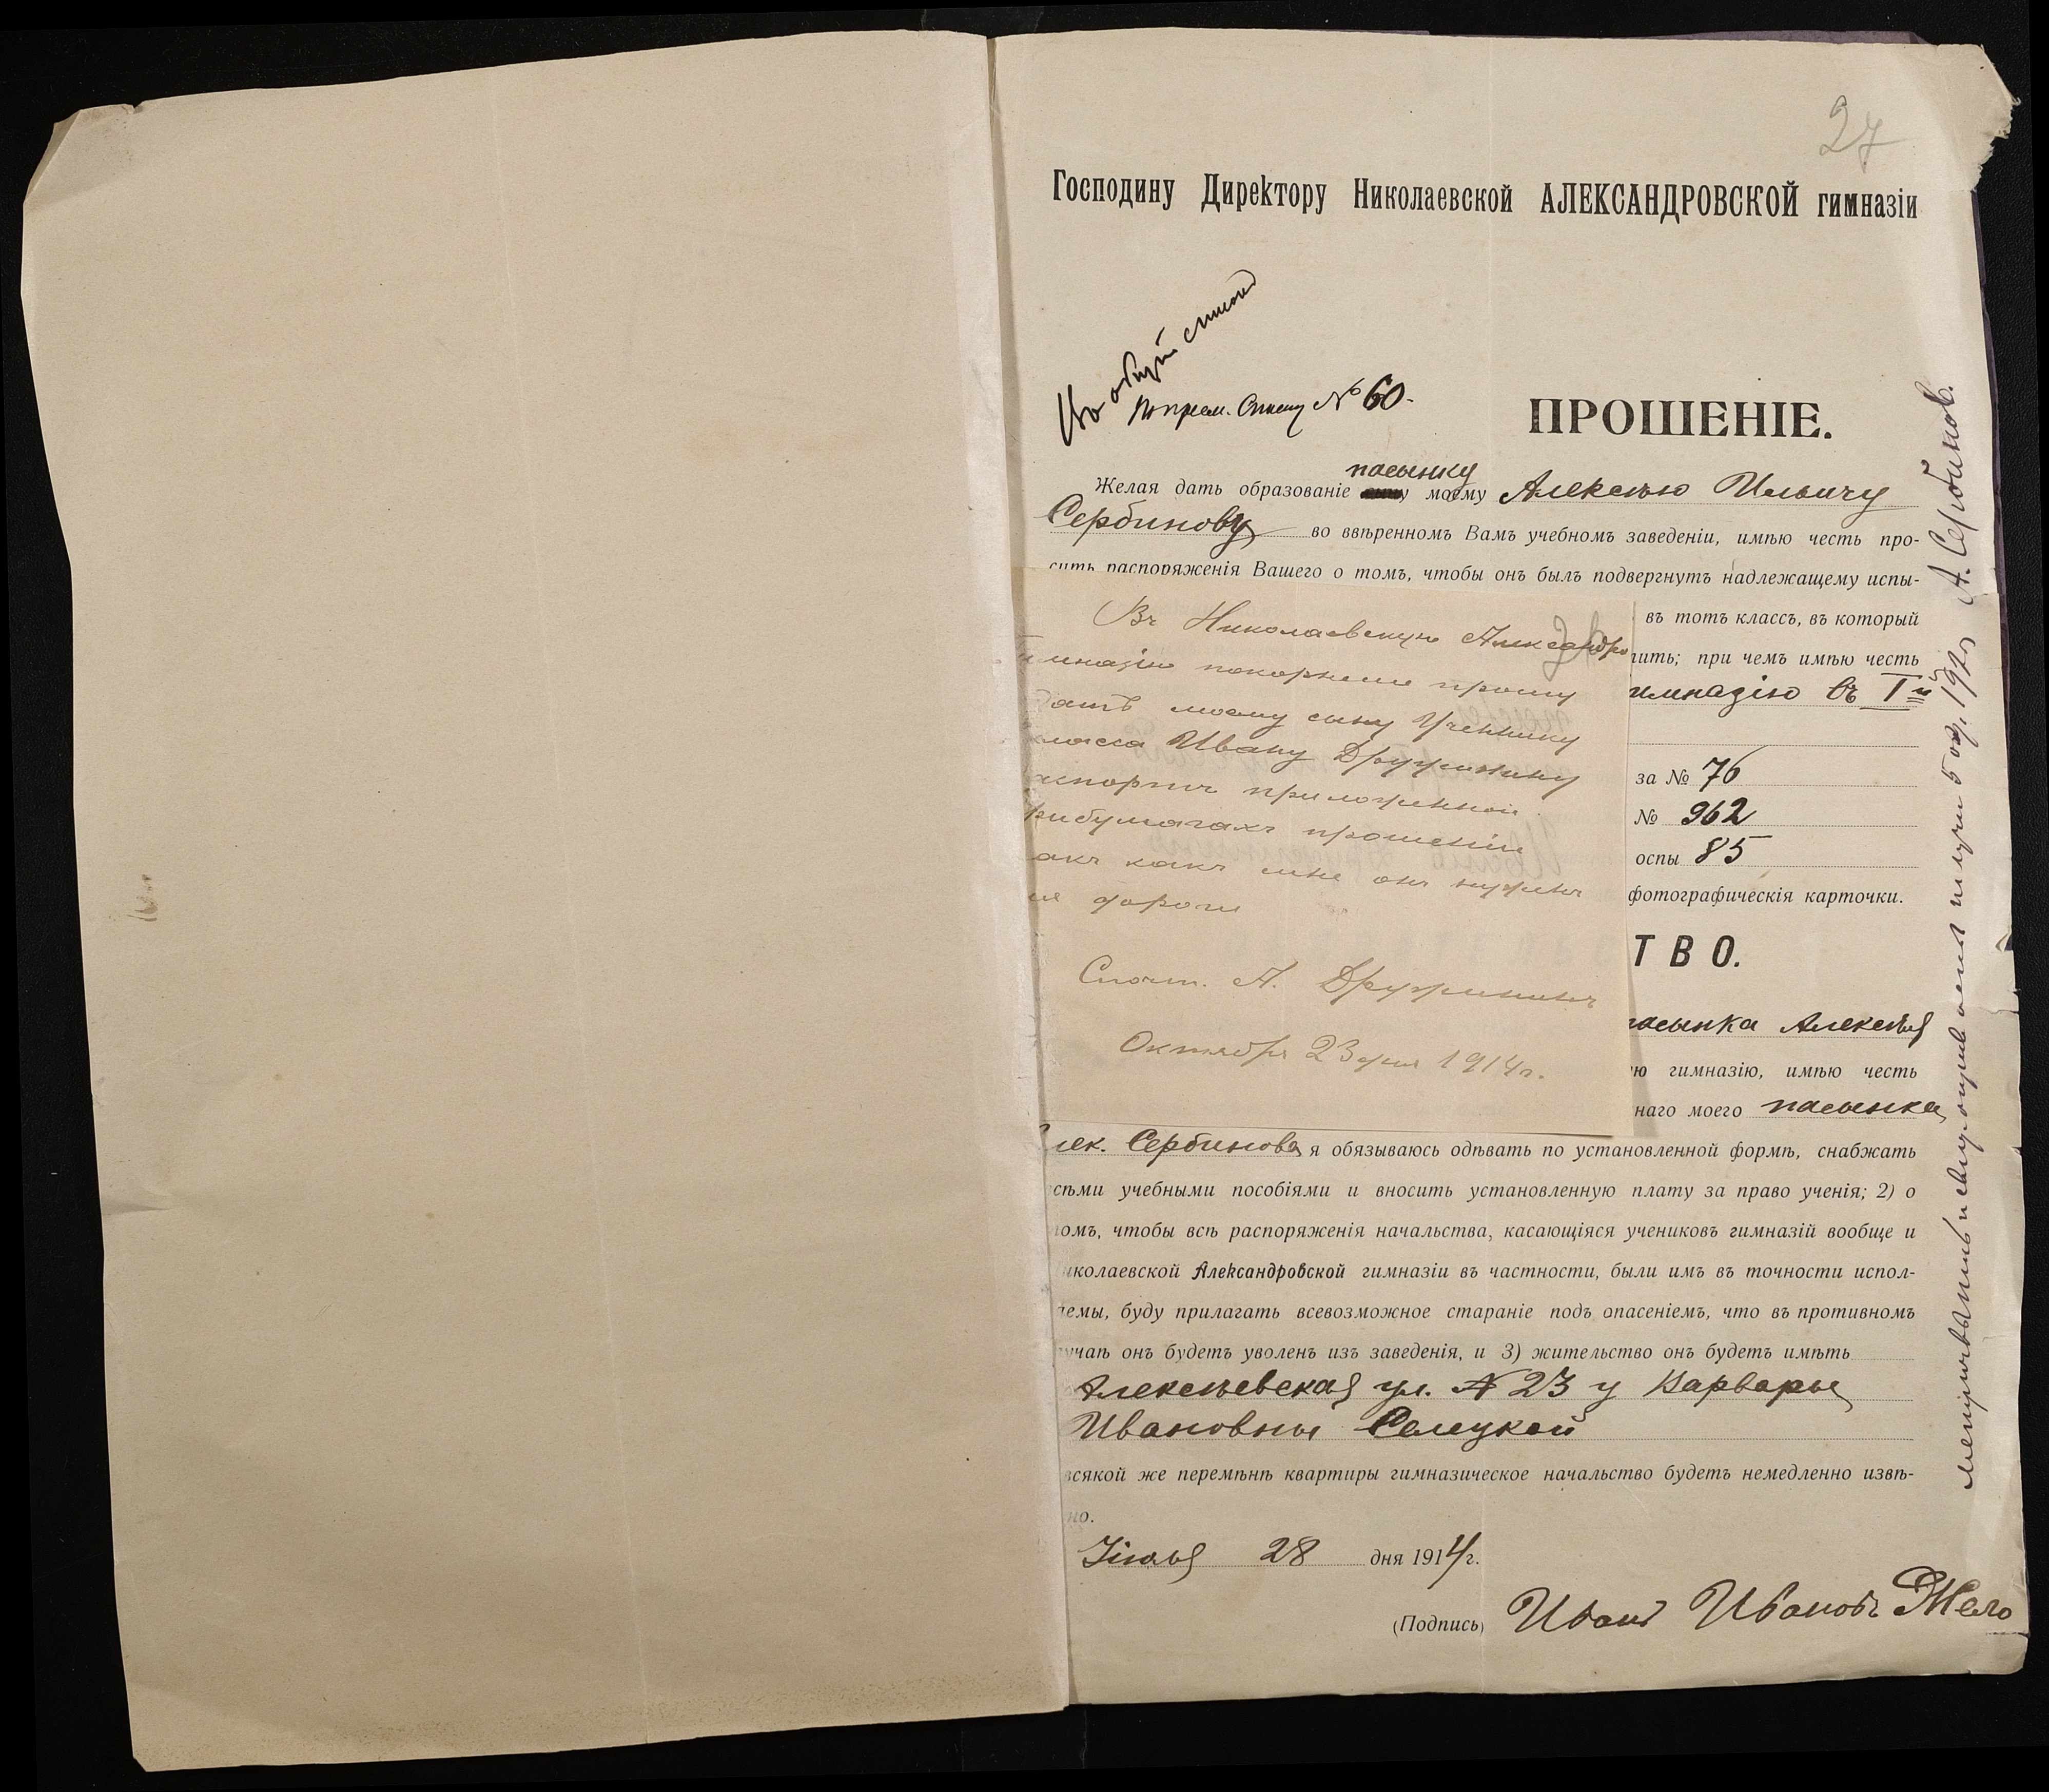 27
Господину Директору Николаевской АЛЕКСАНДРОВСКОЙ гимназіи
Во общій список
№ 60.
ПРОШЕНІЕ.
пасынку
Желая дать образованіе моему Алексѣю Ильичу
Сербинову во ввѣренномъ Вамъ учебномъ заведеніи, имѣю честь про-
сить распоряженія Вашего о томъ, чтобы онъ былъ подвергнутъ надлежащему испы-
въ тотъ классъ, въ который
при чемъ имѣю честь
имназію въ Iй
за № 76
№ 962
оспы 85
фотографическія карточки.
ТВО.
пасынка Алексѣя
ю гимназію, имѣю честь
наго моего пасынка
лек. Сербинова я обязываюсь одѣвать по установленной формѣ, снабжать
сѣми учебными пособіями и вносить установленную плату за право ученія; 2) о
омъ, чтобы всѣ распоряженія начальства, касающіяся учениковъ гимназій вообще и
иколаевской Александровской гимназіи въ частности, были имъ въ точности испол-
яемы, буду прилагать всевозможное стараніе подъ опасеніемъ, что въ противномъ
учаѣ онъ будетъ уволенъ изъ заведенія, и 3) жительство онъ будетъ имѣть
Алексѣевская ул. № 23 у Варвары
Ивановны Селецкой
всякой же перемѣнѣ квартиры гимназическое начальство будетъ немедленно извѣ-
но.
Іюля 28 дня 1914 г.
(Подпись) Иванъ Ивановъ Жело
Въ Николаевскую Александро
имназію покорнеше прошу
дать моему сыну Ученнику
класса Ивану Дружинину
аспортъ приложенной
рибумагахъ прошеніи
акъ какъ мне онъ нуженъ
ля дороги
Спочт. А. Дружининъ
Октября 23 дня 1914 г.
метрич. выпись и свид. о прив. оспы получ. 5 1920 А. Сербинов.